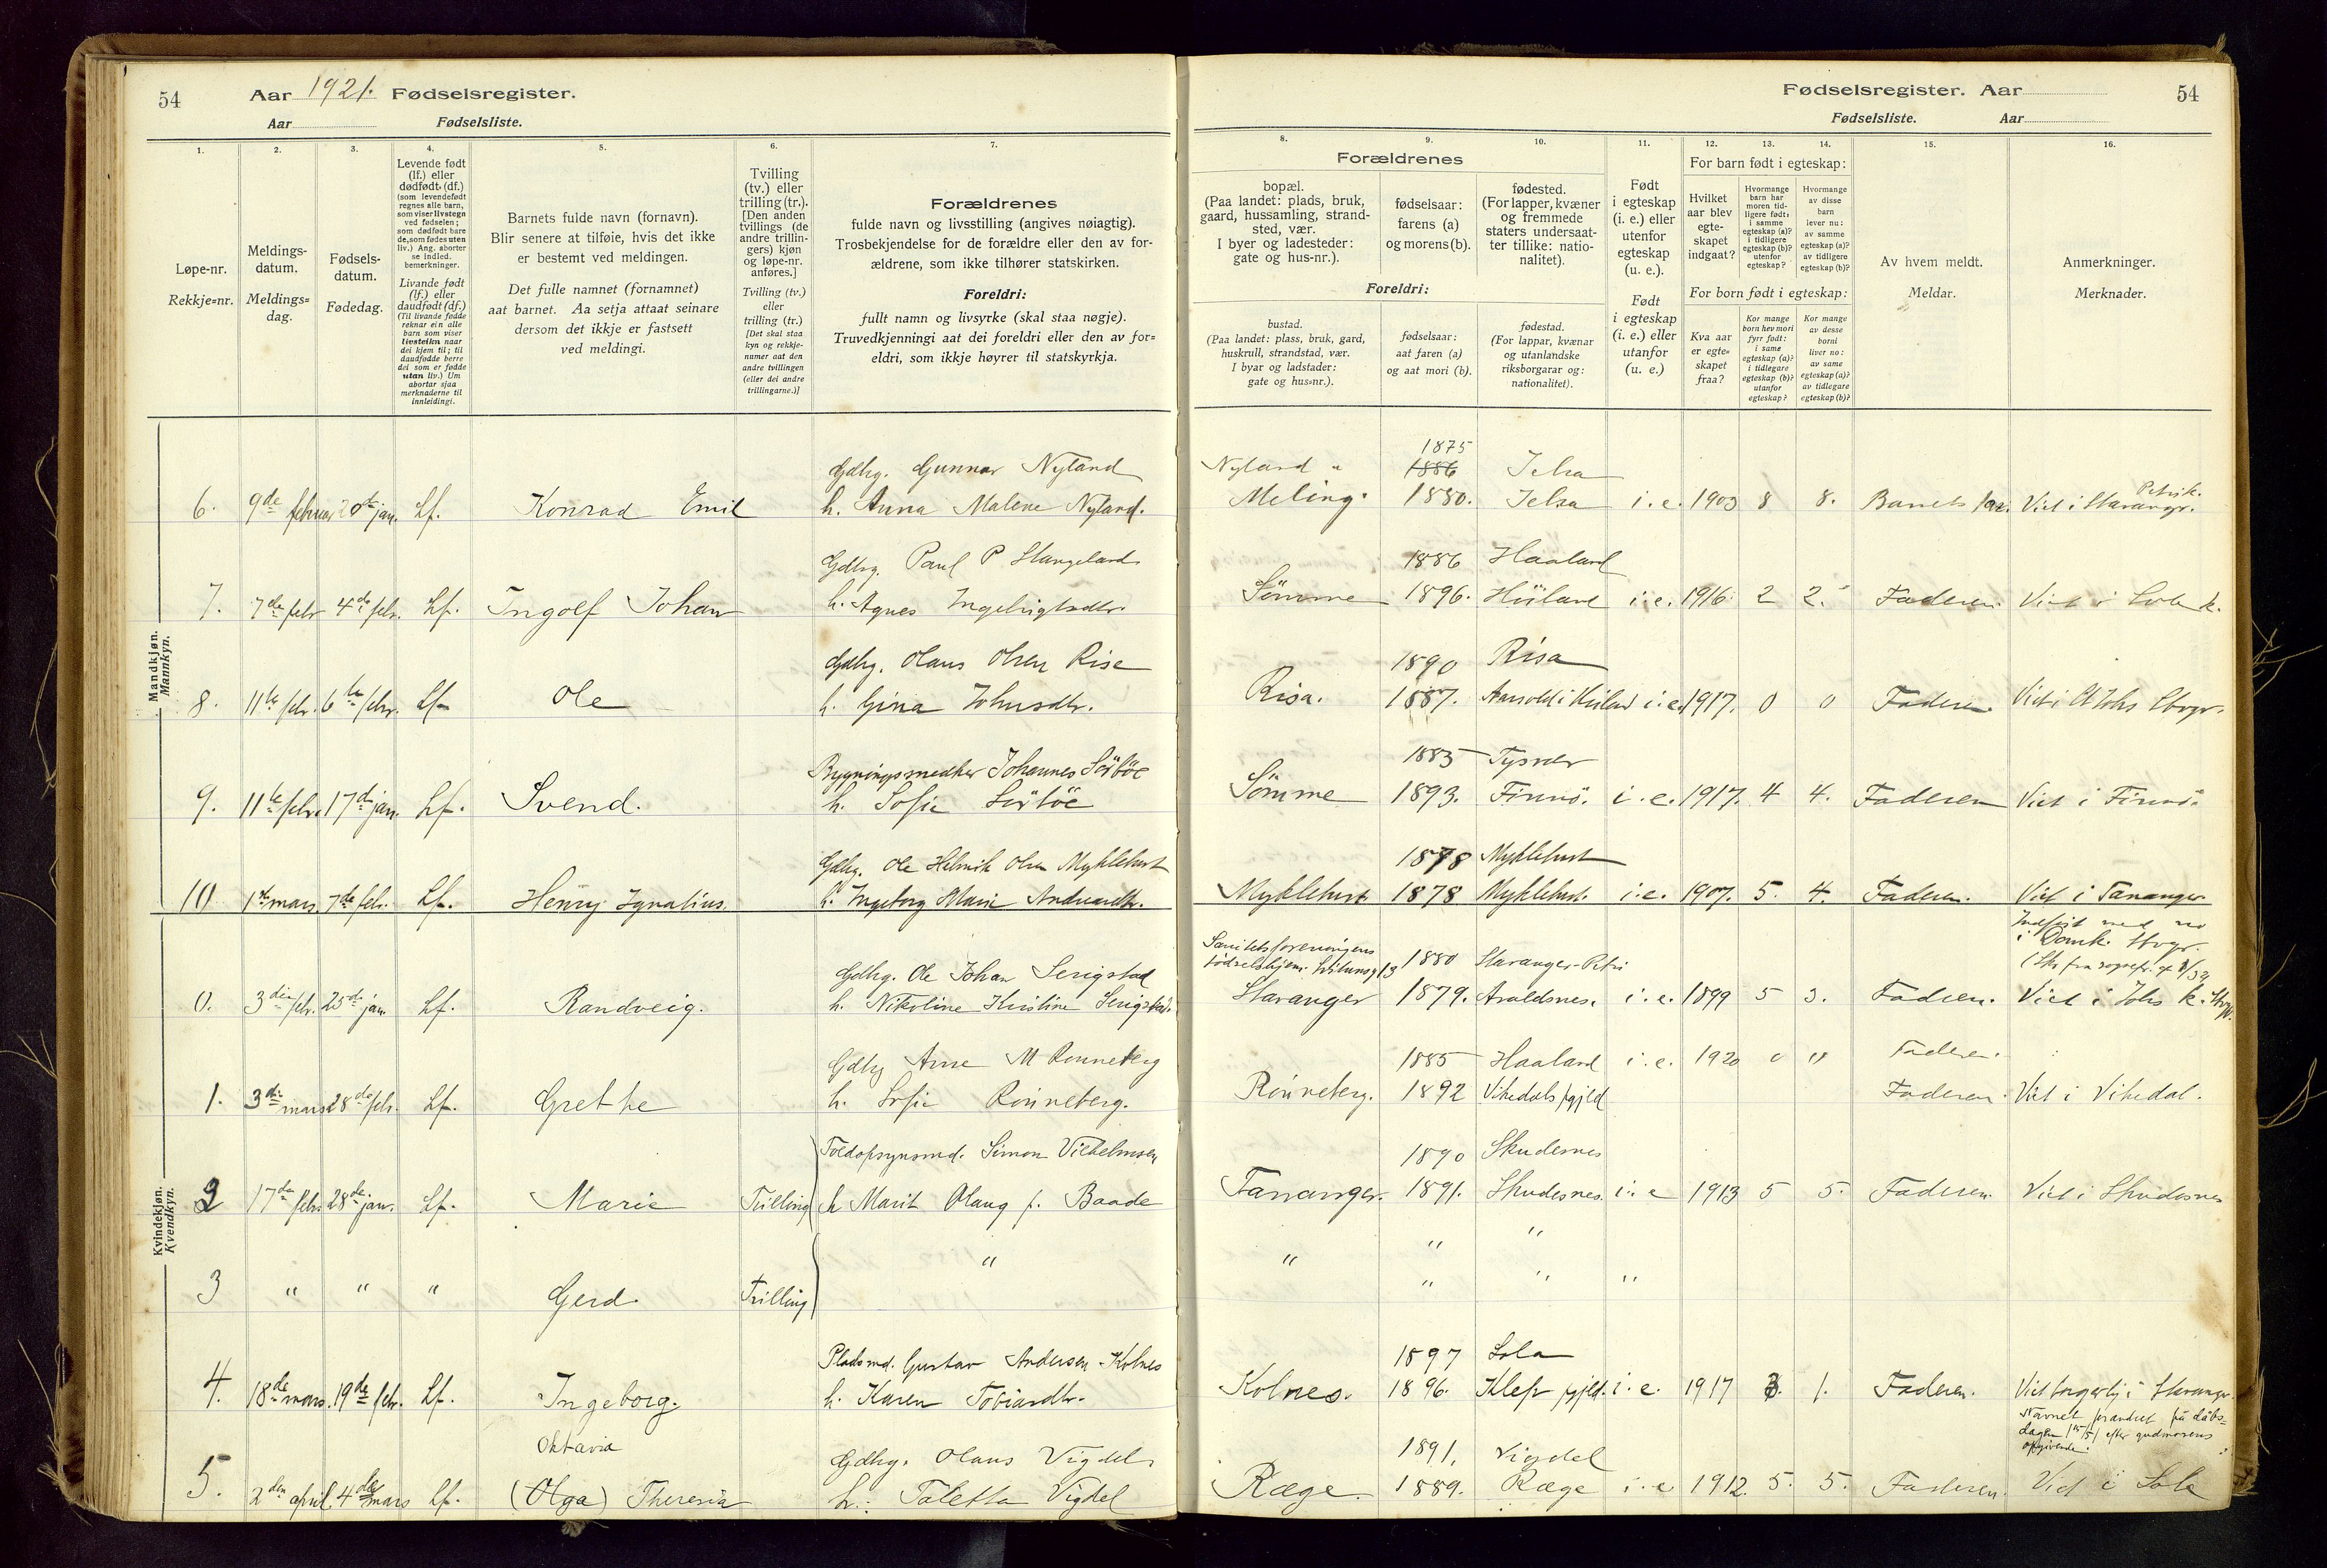 54 Aar 1921. Fødselsregister.
Aar Fødselsliste.
Fødselsregister. Aar 54
Fødselsliste. Aar
1. 2. 3. 4. 5. 6. 7.
Løpe-nr.
Rekkje=nr.
Meldings-
datum.
Meldings=
dag.
Fødsels-
datum.
Fødedag.
Levende født
(lf.) eller
dødfødt (df.)
(som levendefødt
regnes alle barn,
som viser livstegn
ved fødselen;
som dødfødt bare
de, som fødes uten
liv.) Ang. aborter
se indled.
bemerkninger.
Livande født
(lf.) eller
daudfødt (df.)
(Til livande fødde
reknar ein alle
barn som viser
livsteikn naar
dei kjem til; til
daudfødde berre
dei som er fødde
utan liv.) Um
abortar sjaa
merknaderne til
innleidingi.
Barnets fulde navn (fornavn).
Blir senere at tilføie, hvis det ikke
er bestemt ved meldingen.
Det fulle namnet (fornamnet)
aat barnet. Aa setja attaat seinare
dersom det ikkje er fastsett
ved meldingi.
Tvilling
(tv.) eller
trilling (tr.).
[Den anden
tvillings (de
andre trillin-
gers) kjøn
og løpe-nr.
anføres.]
Tvilling (tv.)
eller
trilling (tr.)
[Det skal staa
kyn og rekkje-
numer aat den
andre tvillingen
(eller dei andre
trillingarne.)]
Forældrenes
fulde navn og livsstilling (angives nøiagtig).
Trosbekjendelse for de forældre eller den av for-
ældrene, som ikke tilhører statskirken.
Foreldri:
fullt namn og livsyrke (skal staa nøgje).
Truvedkjenningi aat dei foreldri eller den av for=
eldri, som ikkje høyrer til statskyrkja.
8. 9. 10. 11. 12. 13. 14. 15. 16.
Forældrenes
bopæl.
(Paa landet: plads, bruk,
gaard, hussamling, strand-
sted, vær.
I byer og ladesteder:
gate og hus-nr.).
fødselsaar:
farens (a)
og morens (b).
fødested.
(For lapper, kvæner
og fremmede
staters undersaat-
ter tillike: natio-
nalitet).
Foreldri:
bustad.
(Paa landet: plass, bruk, gard,
huskrull, strandstad, vær.
I byar og ladstader:
gate og hus=nr.).
fødselsaar:
aat faren (a)
og aat mori (b).
fødestad.
(For lappar, kvænar
og utanlandske
riksborgarar og:
nationalitet).
Født
i egteskap
(i. e.) eller
utenfor
egteskap
(u. e.).
Født
i egteskap
(i. e.) eller
utanfor
(u. e.)
For barn født i egteskap:
Hvilket
aar blev
egte-
skapet
indgaat?
Hvormange
barn har
moren tid-
ligere født:
i samme
egteskap (a)?
i tidligere
egteskap (b)?
utenfor
egteskap?
Hvormange
av disse
barn
lever nu:
av samme
egteskap (a)?
av tidligere
egteskap (b)?
For born født i egteskap:
Kva aar
er egte=
skapet
fraa?
Kor mange
born hev mori
fyrr født:
i same
egteskap (a)?
i tidlegare
egteskap (b)?
utanfor
egteskap?
Kor mange
av desse
borni
liver no:
av same
egteskap (a)?
av tidlegare
egteskap (b)?
Av hvem meldt.
Meldar.
Anmerkninger.
Merknader.
Mandkjøn.
Mannkyn.
Gdbg. Gunnar Nyland Nyland 1875 1886 Jelsa
6. 9de februar 20de jan. Lf. Konrad Emil h. Anna Malene Nyland. Meling. 1880. Jelsa i. e. 1903 8 8. Barnets far. Viet i Stavangr. Petrik.
Gdbg. Paul P Stangeland 1886 Haaland
7. 7de febr 4de febr. Lf. Ingolf Johan h. Agnes Ingebrigtsdtr. Sömme 1896. Höiland i. e. 1916. 2 2. Faderen. Viet i Sola k.
Gdbg. Olaus Olsen Risa 1890 Risa
8. 11te febr. 6te febr. Lf. Ole h. Gina Johnsdtr. Risa. 1887. i. e. 1917. 0 0 Faderen. Viet i St Johs Stvgr.
Bygningssnedker Johannes Sörböe 1883 Tysvær
9. 11te febr. 17de jan. Lf. Svend. h. Sofie Sörböe Sömme 1893. Finnö. i. e. 1917. 4 4. Faderen Viet i Finnö.
Gdbg. Ole Helmik Olsen Myklebust 1878 Myklebust
10 1ste mars. 7de febr. Lf. Henry Ignatius. h. Ingeborg Marie Andreasdtr. Myklebust 1878 Myklebust. i. e. 1907. 5. 4. Faderen. Viet i Tananger
Kvindekjøn.
Kvendkyn.
Indført med no
i Domk. Stvgr.
Gdbg. Ole Johan Serigstad Sanitetsforeningens fødselshjem 13 1880 Stavanger-Petri
0. 3die febr. 25de jan. Lf. Randveig. h. Nikoline Kristine Serigstad. Stavanger 1879. Avaldsnes. i. e. 1899 5 3. Faderen. Viet i Johs k. Stvgr.
Gdbg Arne M Rönneberg 1885 Haaland i. e. 1920 0 0 Faderen.
1. 3die mars 28de febr. Lf. Grethe h. Sofie Rönneberg. Rönneberg. 1892 Vikedals pgjeld Faderen. Viet i Vikedal.
Toldopsynsmd. Simon Vilhelmsen 1890 Skudesnes
2 17de febr. 28de jan. Lf. Marie Trilling h Marit Olaug f. Baade Tananger. 1891. Skudesnes. i. e 1913 5 5. Faderen. Viet i Skudesnes
3 " " " Gerd. Trilling " " " " " " "
Pladsmd. Gustav Andersen Kolnes 1897 Sola
4. 18de mars. 19de febr. Lf. Ingeborg. h. Karen Tobiasdtr. Kolnes. 1896. Klep pgjeld. i. e. 1917 3. 1. Faderen. Viet borgerlig i Stavanger.
Navnet forandret på dåbs=
dagen efter gudmorens
opgivende.
Oktavia Gdbg. Olaus Vigdel 1891. Vigdel
5. 2den april. 4de mars Lf. (Olga) Theresia h. Taletta Vigdel Ræge. 1889. Ræge i. e 1912. 5. 5. Faderen. Viet i Sola